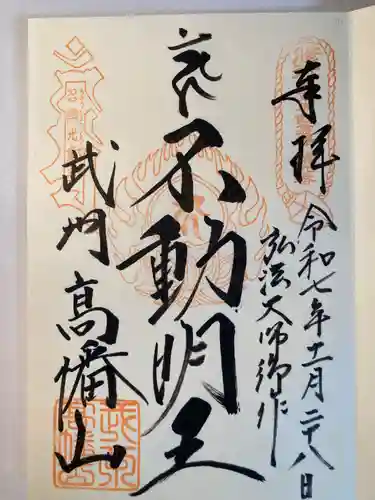 奉拝
令和七年十一月二十八日
弘法大師御作
不動明王
武州
高幡山